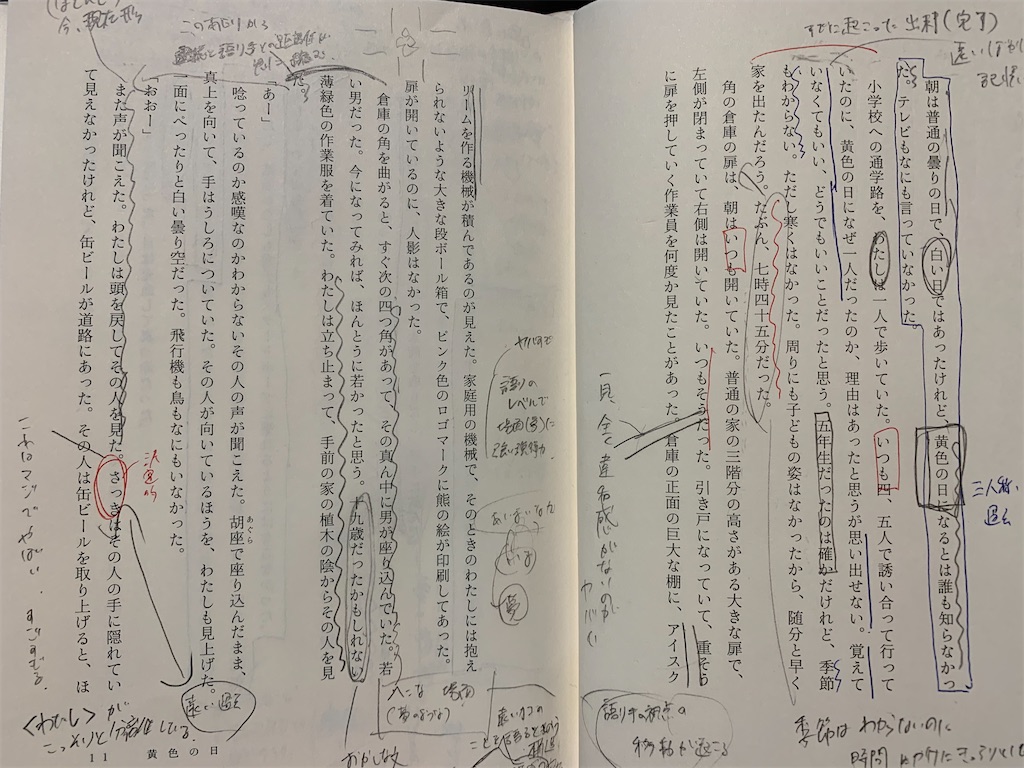 朝は普通の曇りの日で、白い日ではあったけれど、黄色の日になるとは誰も知らなかっ
た。テレビもなにも言っていなかった。
小学校への通学路を、わたしは一人で歩いていた。いつも四、五人で誘い合って行って
いたのに、黄色の日になぜ一人だったのか、理由はあったと思うが思い出せない。覚えて
いなくてもいい、どうでもいいことだったと思う。五年生だったのは確かだけれど、季節
もわからない。ただし寒くはなかった。周りにも子どもの姿はなかったから、随分と早く
家を出たんだろう。たぶん、七時四十五分だった。
角の倉庫の扉は、朝はいつも開いていた。普通の家の三階分の高さがある大きな扉で、
左側が閉まっていて右側は開いていた。いつもそうだった。引き戸になっていて、重そう
に扉を押していく作業員を何度か見たことがあった。倉庫の正面の巨大な棚に、アイスク
リームを作る機械が積んであるのが見えた。家庭用の機械で、そのときのわたしには抱え
られないような大きな段ボール箱で、ピンク色のロゴマークに熊の絵が印刷してあった。
扉が開いているのに、人影はなかった。
倉庫の角を曲がると、すぐ次の四つ角があって、その真ん中に男が座り込んでいた。若
い男だった。今になってみれば、ほんとうに若かったと思う。十九歳だったかもしれない。
薄緑色の作業服を着ていた。わたしは立ち止まって、手前の家の植木の陰からその人を見
た。
「あー」
唸っているのか感嘆なのかわからないその人の声が聞こえた。胡座で座り込んだまま、
あぐら
真上を向いて、手はうしろについていた。その人が向いているほうを、わたしも見上げた。
一面にべったりと白い曇り空だった。飛行機も鳥もなにもいなかった。
「おお」
まだ声が聞こえた。わたしは頭を戻してその人を見た。さっきはその人の手に隠れてい
て見えなかったけれど、缶ビールが道路にあった。その人は缶ビールを取り上げると、ほ
11 黄色の日
すでに起こった出来事(完了)
記憶
二人称
過去
季節はわからないのに
語り手の視点の
移転が起こる
一見、全く違和感がないのが
ヤバい
語りの
レベルで
このあたりから
これはマジでやばい。すごすぎる。
〈わたし〉が
こっそりと
遠い過去